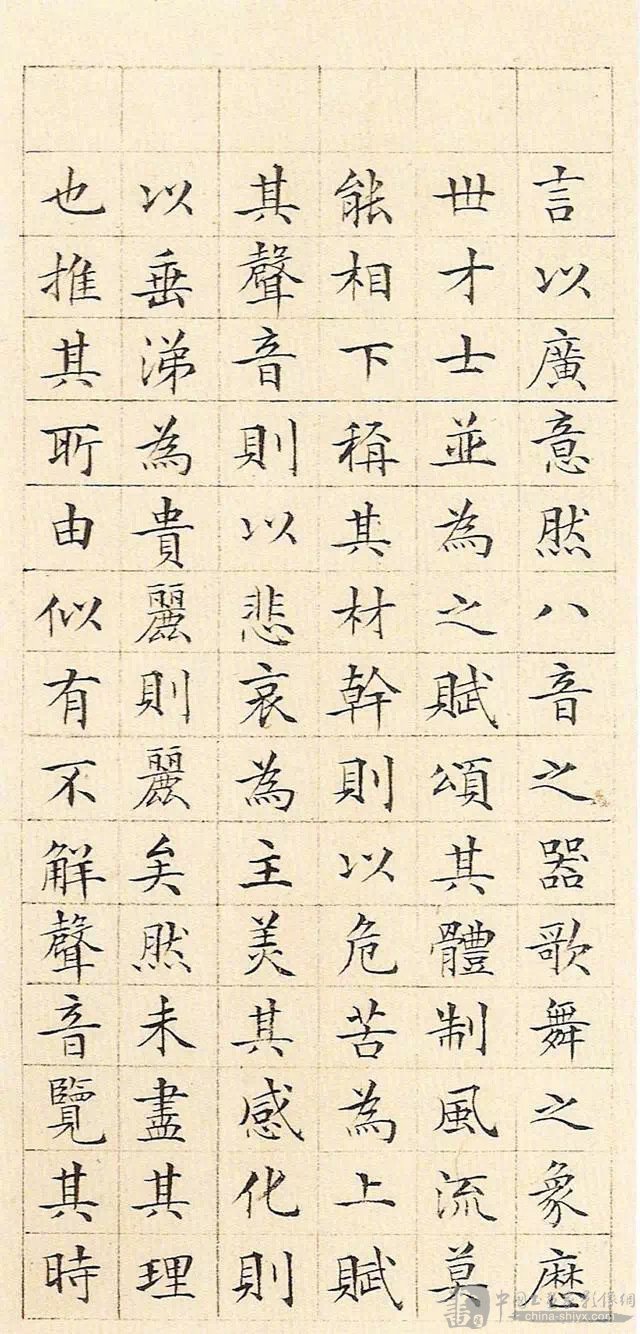 言以廣意然八音之器歌舞之象厯
世才士並為之賦頌其體制風流莫
能相下稱其材幹則以危苦為上賦
其聲音則以悲哀為主美其感化則
以垂涕為貴麗則麗矣然未盡其理
也推其所由似有不解聲音覽其時
china-shiyx.com